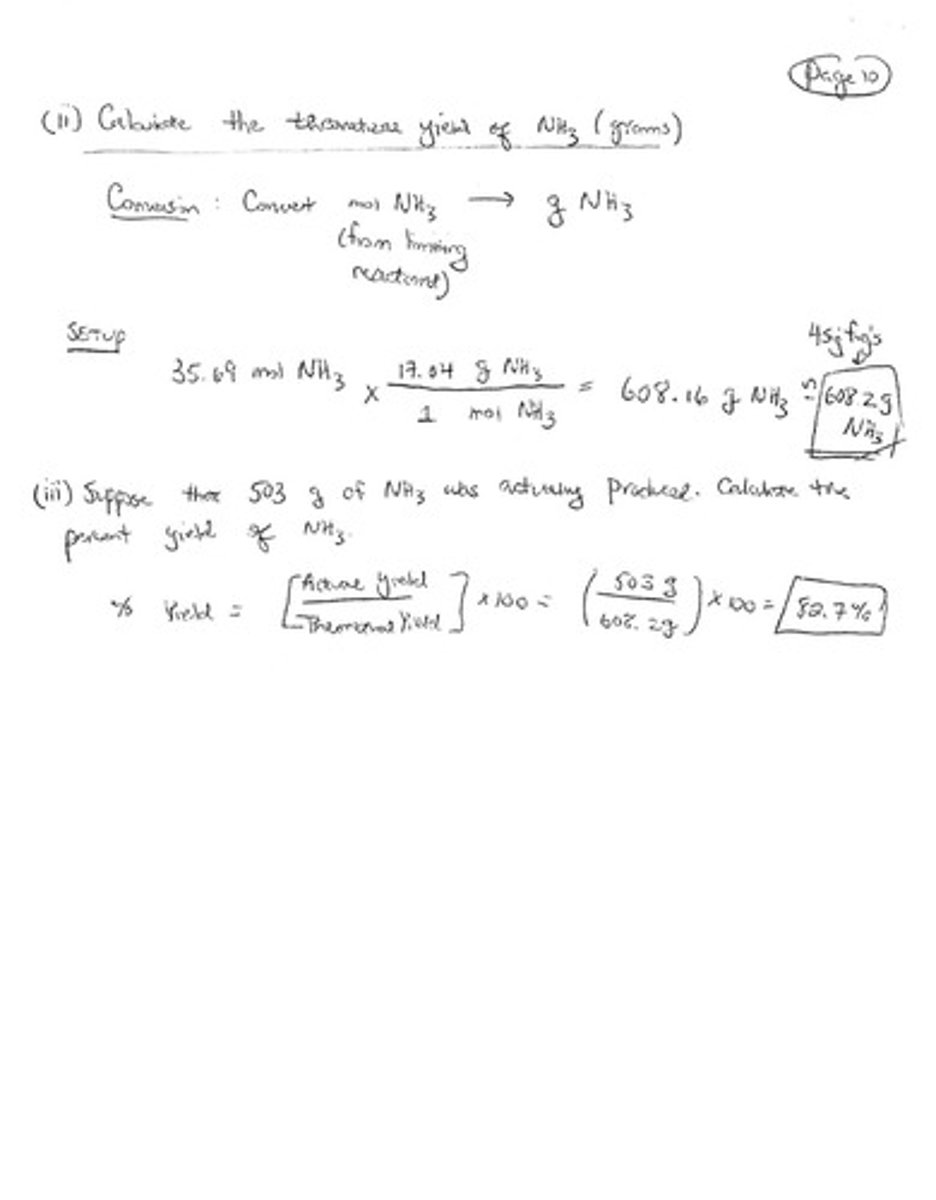 Page 10
(ii) Calculate the theoretical yield of NH3 (grams)
Conversion : Convert mol NH3 → g NH3
(from limiting
reactant)
SETUP
4 sig fig's
35.69 mol NH3 x 17.04 g NH3 / 1 mol NH3 = 608.16 g NH3 ≈ 608.2 g NH3
(iii) Suppose that 503 g of NH3 was actually produced. Calculate the
percent yield of NH3.
% Yield = [Actual Yield / Theoretical Yield] x 100 = (503 g / 608.2g) x 100 = 82.7%